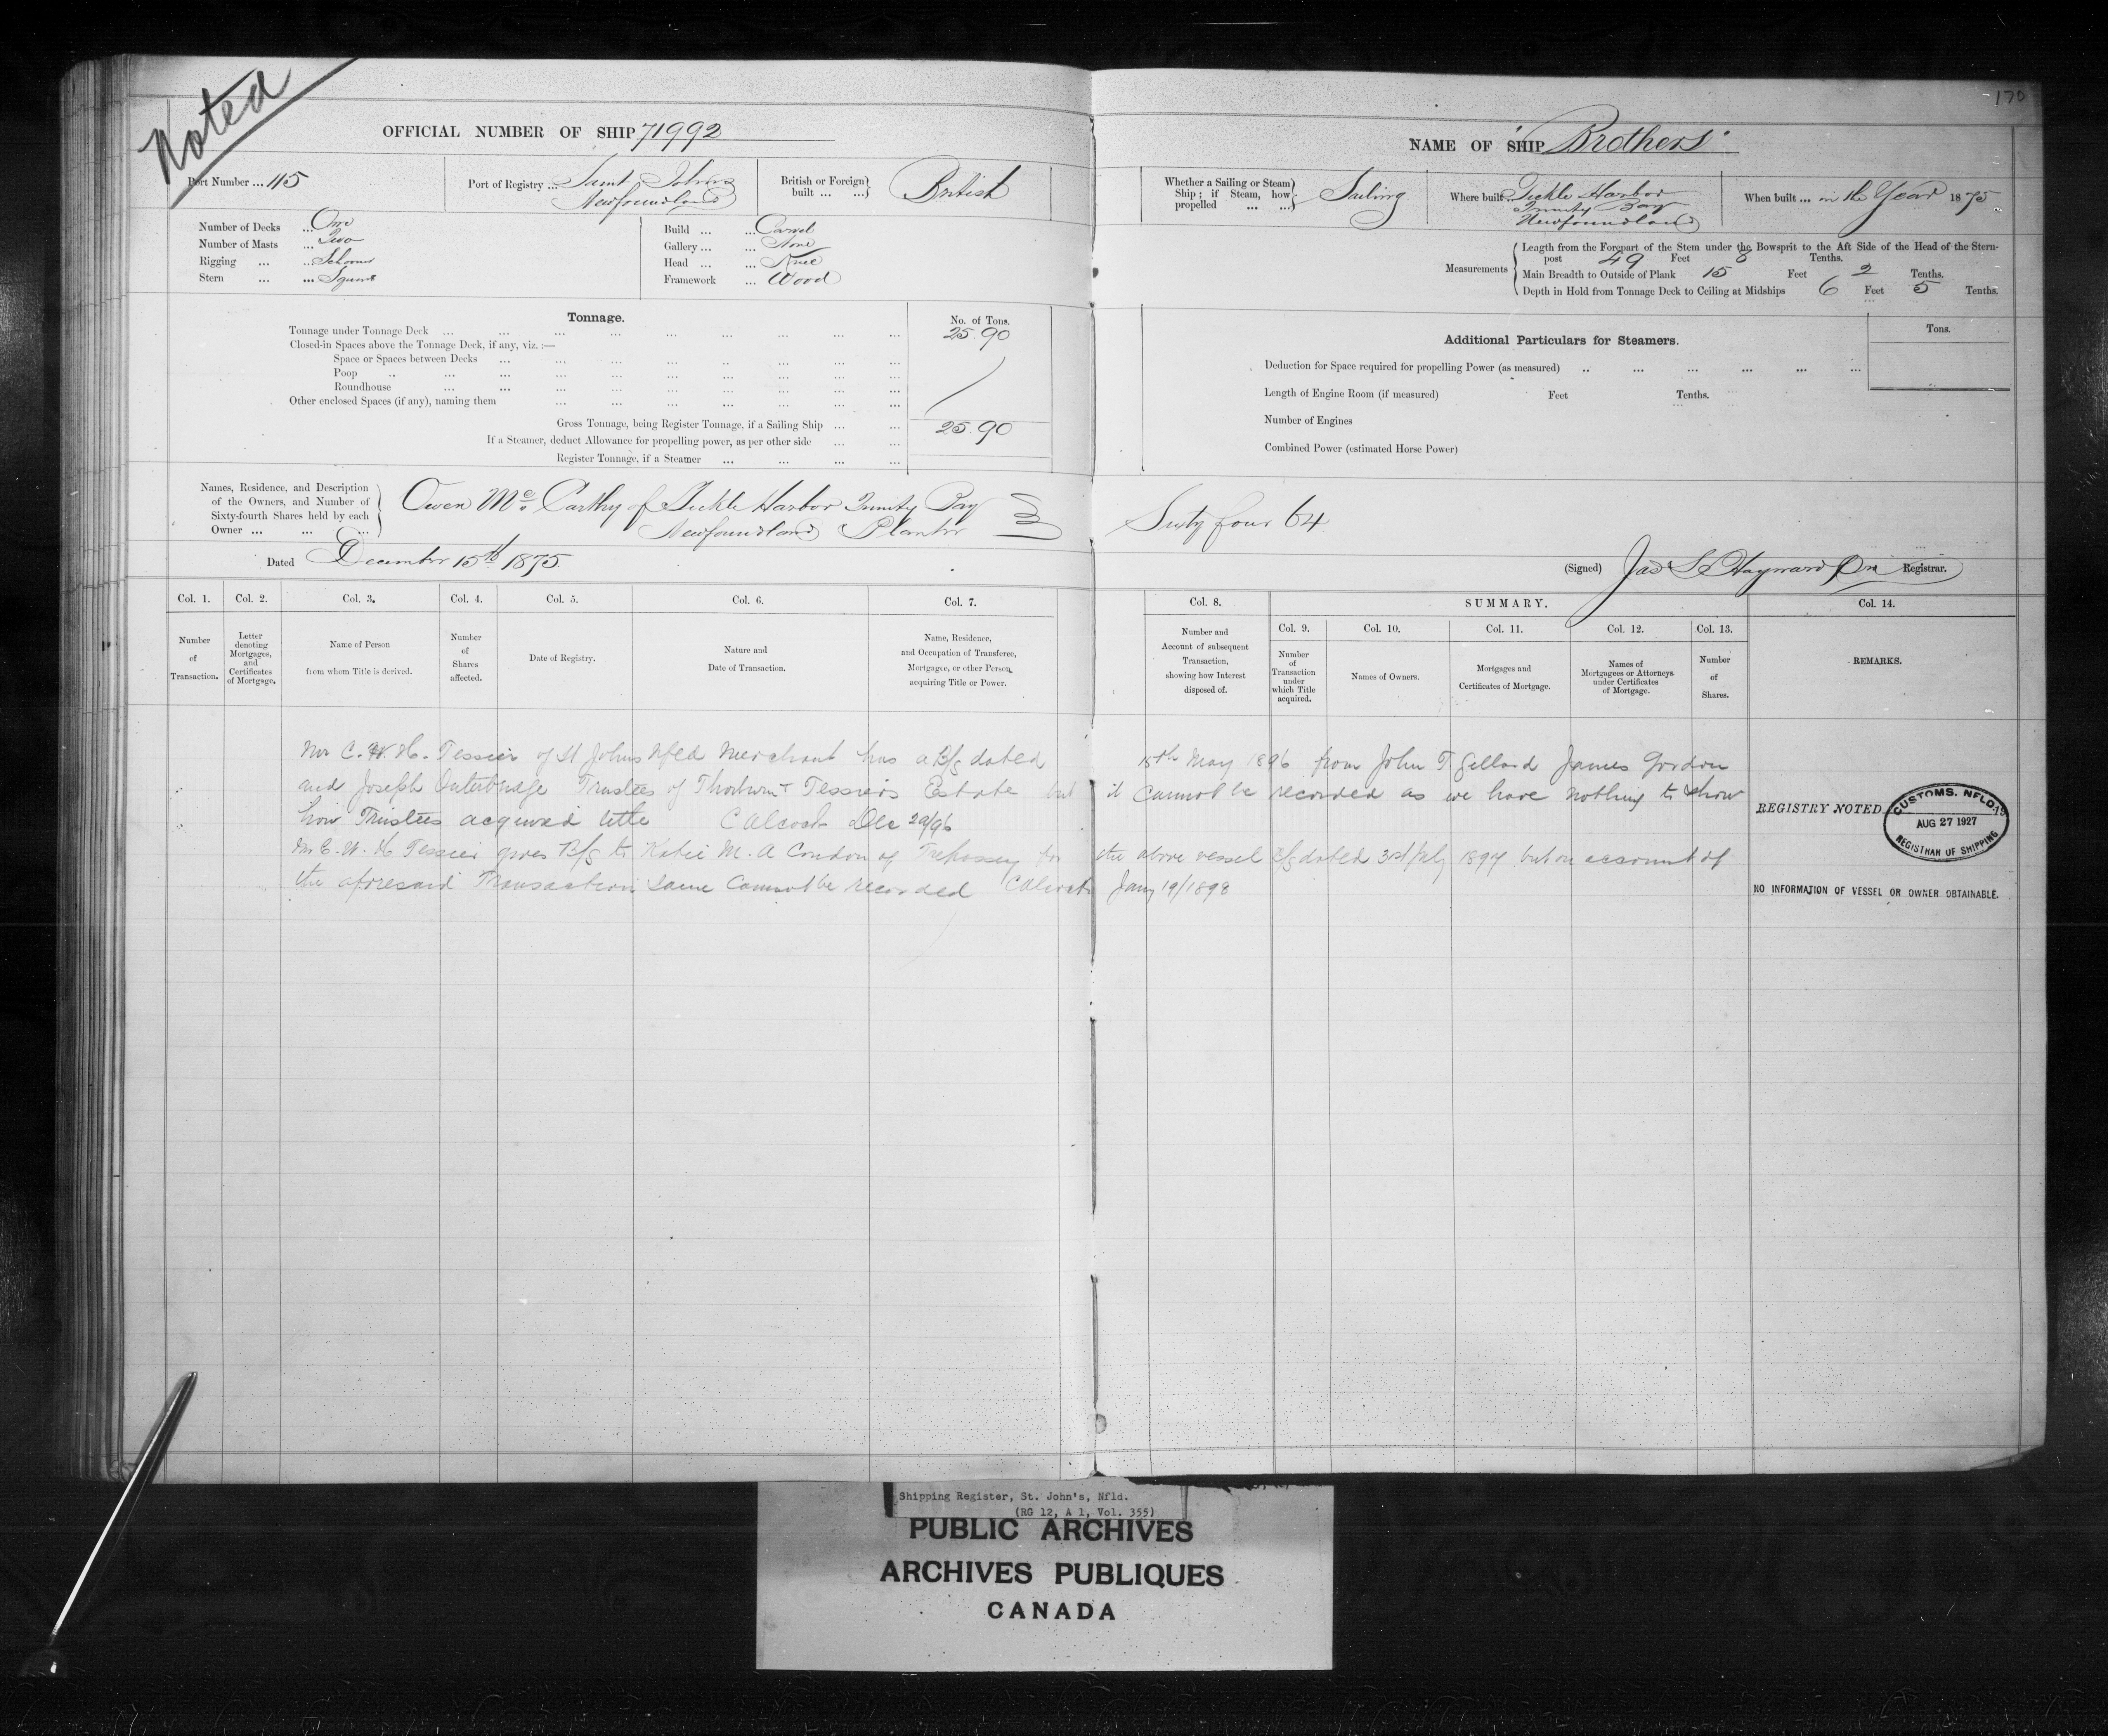 Noted
170
OFFICIAL NUMBER OF SHIP 71992
NAME OF SHIP "Brothers"
Port Number ... 115
Port of Registry ... Saint Johns
Newfoundland
British or Foreign built ... British
Whether a Sailing or Steam Ship; if Steam, how propelled ... Sailing
Where built Tickle Harbor
Trinity Bay
Newfoundland
When built ... in the Year 1875
Number of Decks ... One
Number of Masts ... Two
Rigging ... Schooner
Stern ... Square
Build ... Carvel
Gallery ... None
Head ... Knee
Framework ... Wood
Measurements
Length from the Forepart of the Stem under the Bowsprit to the Aft Side of the Head of the Stern-
post 49 Feet 8 Tenths.
Main Breadth to Outside of Plank 15 Feet 2 Tenths.
Depth in Hold from Tonnage Deck to Ceiling at Midships 6 Feet 5 Tenths.
Tonnage.
No. of Tons.
Tonnage under Tonnage Deck ... 25.90
Closed-in Spaces above the Tonnage Deck, if any, viz. :—
Space or Spaces between Decks ...
Poop ...
Roundhouse ...
Other enclosed Spaces (if any), naming them ...
Gross Tonnage, being Register Tonnage, if a Sailing Ship ... 25.90
If a Steamer, deduct Allowance for propelling power, as per other side ...
Register Tonnage, if a Steamer ...
Additional Particulars for Steamers.
Tons.
Deduction for Space required for propelling Power (as measured) ...
Length of Engine Room (if measured) Feet Tenths.
Number of Engines
Combined Power (estimated Horse Power)
Names, Residence, and Description
of the Owners, and Number of
Sixty-fourth Shares held by each
Owner ...
Owen McCarthy of Tickle Harbor Trinity Bay
Newfoundland Planter
Sixty four 64
Dated December 15th 1875
(Signed) Jas S Hayward Registrar.
Col. 1. Col. 2. Col. 3. Col. 4. Col. 5. Col. 6. Col. 7. Col. 8. SUMMARY. Col. 14.
Col. 9. Col. 10. Col. 11. Col. 12. Col. 13.
Number of Transaction.
Letter denoting Mortgages, and Certificates of Mortgage.
Name of Person from whom Title is derived.
Number of Shares affected.
Date of Registry.
Nature and Date of Transaction.
Name, Residence, and Occupation of Transferee, Mortgagee, or other Person, acquiring Title or Power.
Number and Account of subsequent Transaction, showing how Interest disposed of.
Number of Transaction under which Title acquired.
Names of Owners.
Mortgages and Certificates of Mortgage.
Names of Mortgagees or Attorneys under Certificates of Mortgage.
Number of Shares.
REMARKS.
Mr C. W. H. Tessier of St Johns Nfld Merchant has a B/s dated 15th May 1896 from John T Gillard James Gordon
and Joseph Outerbridge Trustees of Tessiers Estate but it cannot be recorded as we have nothing to show
how Trustees acquired title Calcott Dec 29/96
Mr C. W. H Tessier gives B/s to Katie M. A Condon of Trepassey for the above vessel B/s dated 31st July 1897 but on account of
the aforesaid Transaction same cannot be recorded Calcott Jany 19/1898
REGISTRY NOTED
CUSTOMS, NFLD.
AUG 27 1927
REGISTRAR OF SHIPPING
NO INFORMATION OF VESSEL OR OWNER OBTAINABLE.
Shipping Register, St. John's, Nfld.
(RG 12, A 1, Vol. 355)
PUBLIC ARCHIVES
ARCHIVES PUBLIQUES
CANADA